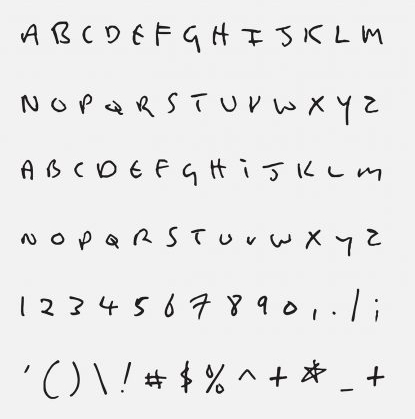 A B C D E F G H I J K L M
N O P Q R S T U V W X Y Z
A B C D E F G H i J K L M
N O P Q R S T U V W X Y Z
1 2 3 4 5 6 7 8 9 0 , . / ;
' ( ) \ ! # $ % ^ + * _ +